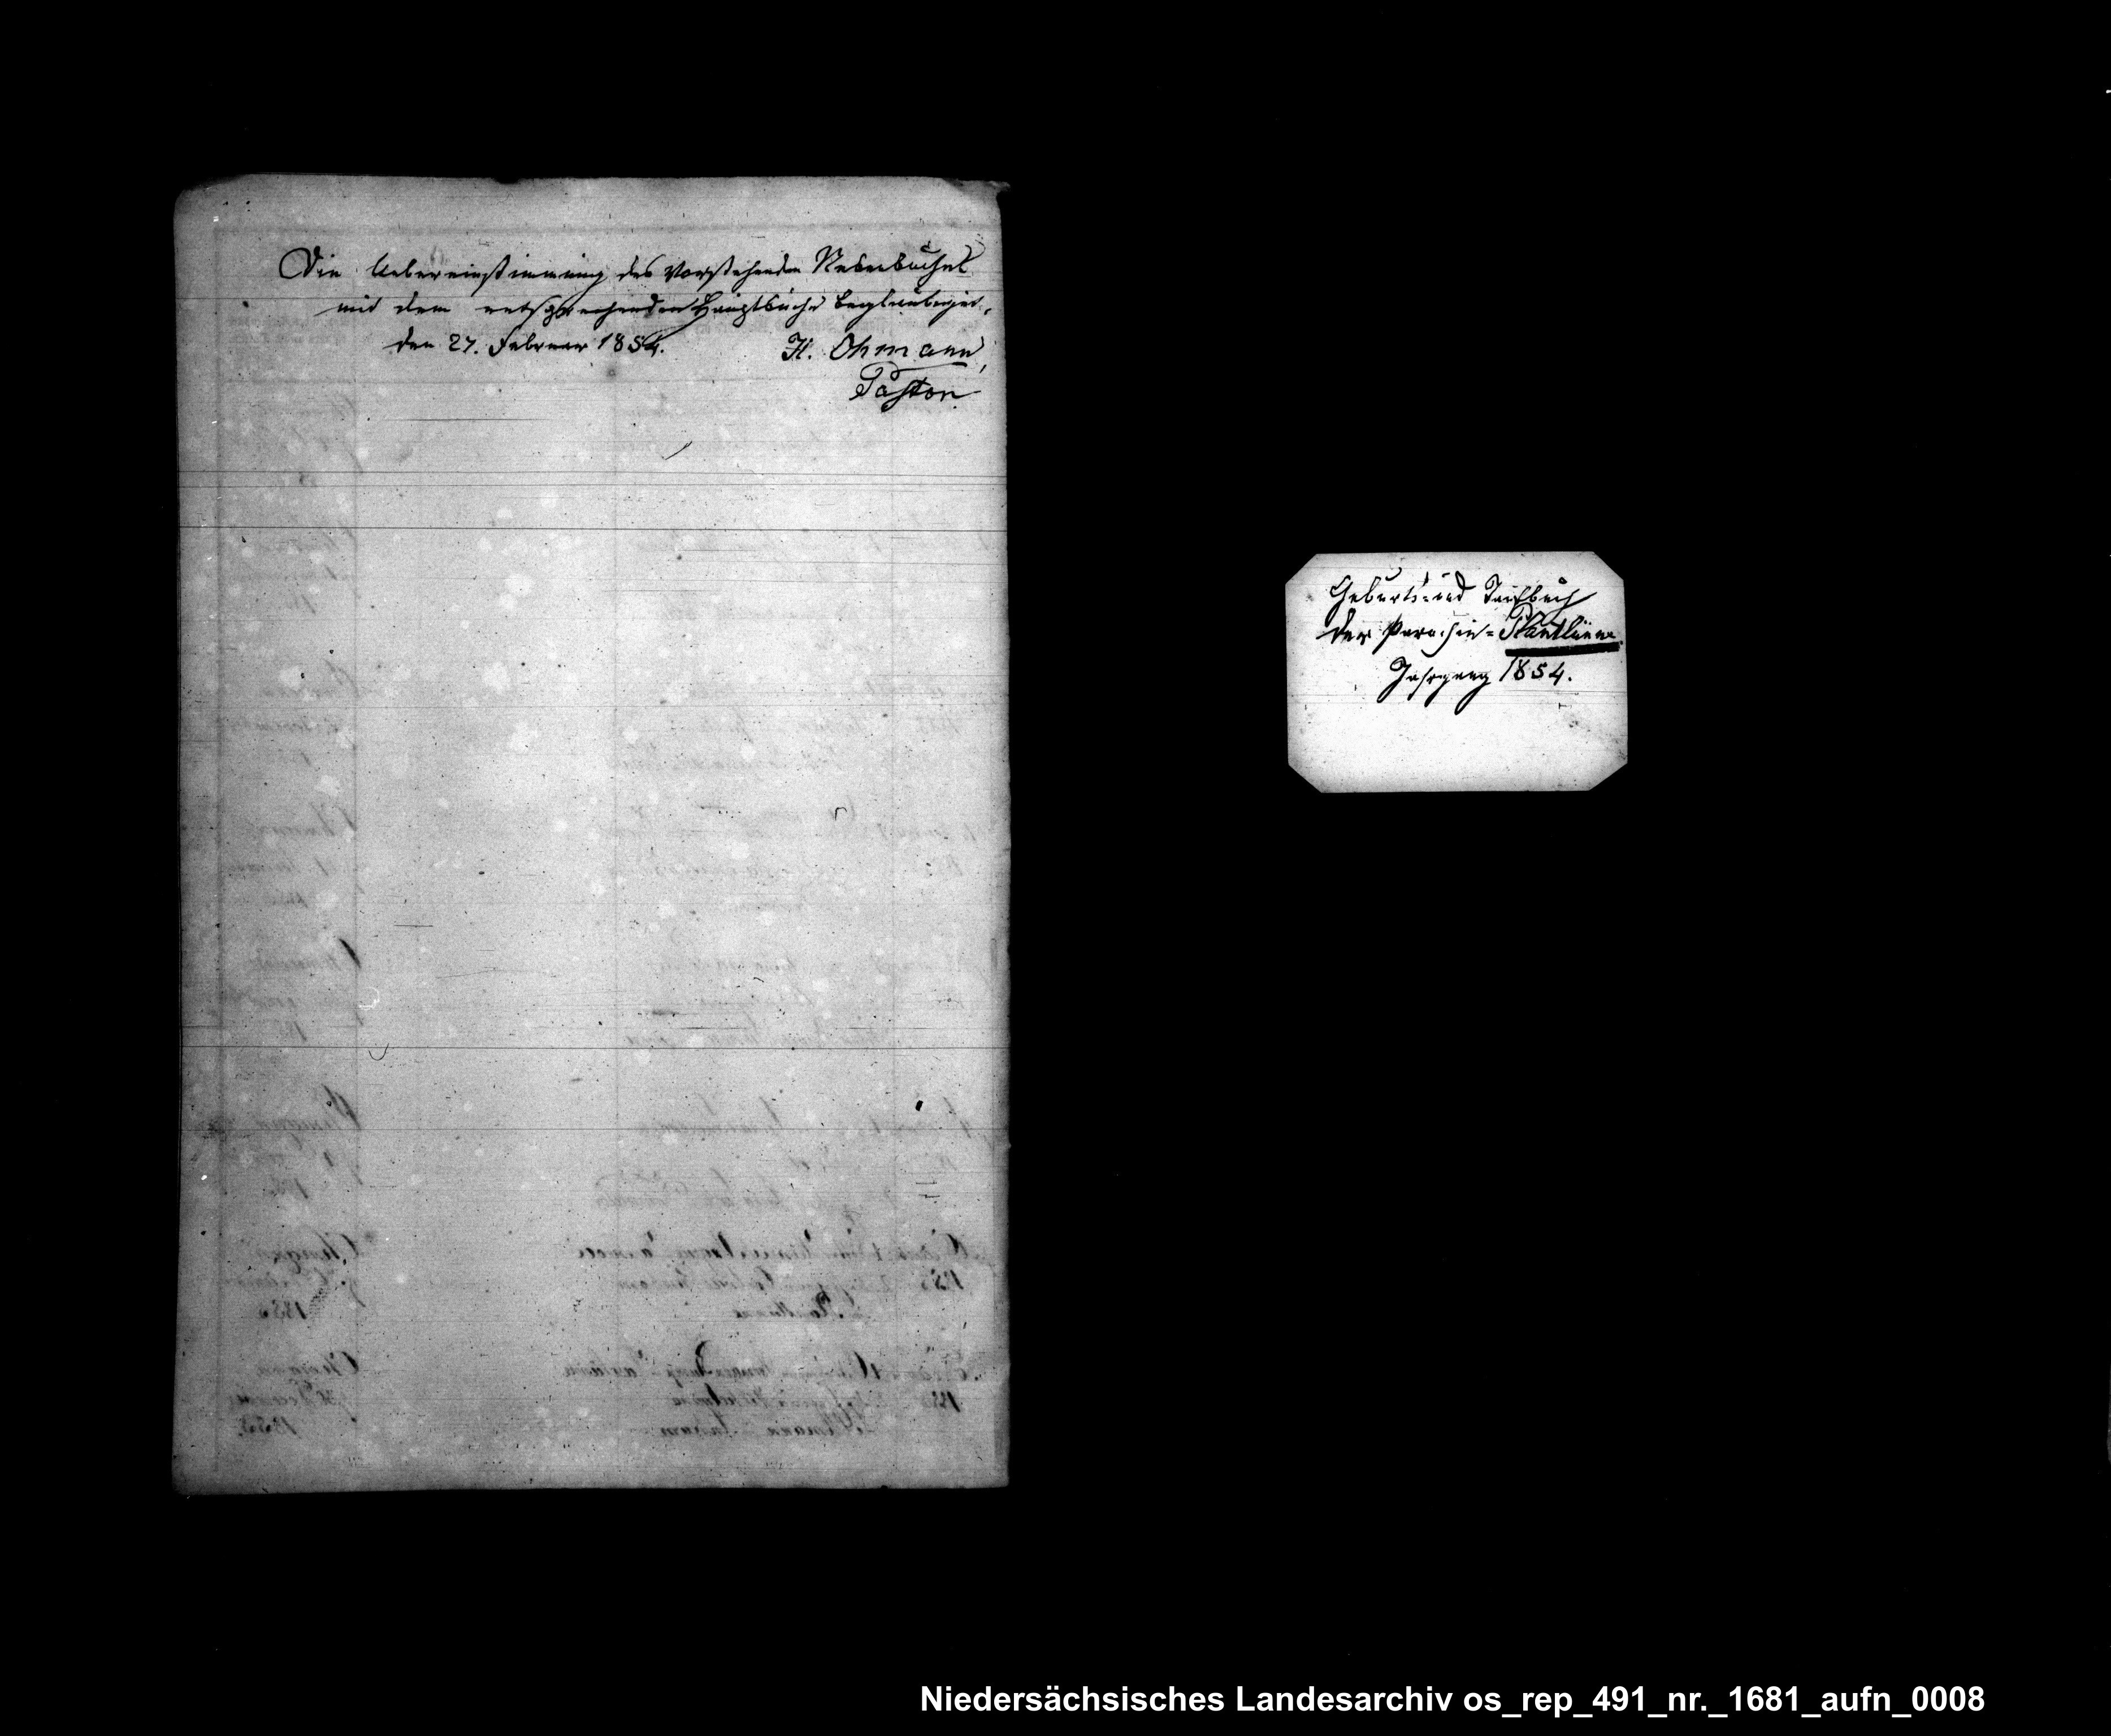 Die Uebereinstimmung des vorstehenden Nebenbuches
mit dem entsprechenden Hauptbuche beglaubigt,
den 27. Februar 1854.
H. Ohmann,
Pastor.
Geburts- und Taufbuch
der Parochie = Plantlünne.
Jahrgang 1854.
Niedersächsisches Landesarchiv os_rep_491_nr._1681_aufn_0008